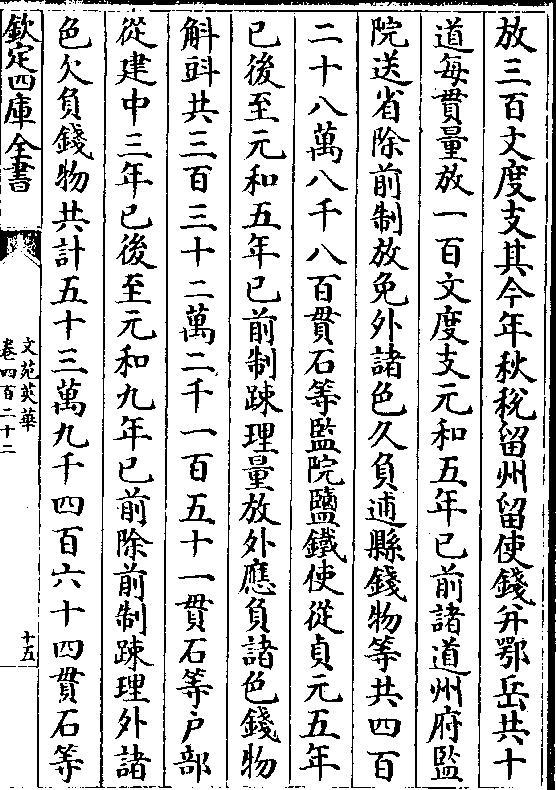 放三百文度支其今年秋稅留州留使錢幷鄂岳共十
道每貫量放一百文度支元和五年已前諸道州府監
院送省除前制放免外諸色久負逋縣錢物等共四百
二十八萬八千八百貫石等監院鹽鐵使從貞元五年
已後至元和五年已前制踈理量放外應負諸色錢物
斛㪷共三百三十二萬二千一百五十一貫石等户部
從建中三年已後至元和九年已前除前制踈理外諸
色欠負錢物共計五十三萬九千四百六十四貫石等
欽定四庫全書
文苑英華
卷四百二十二
十五